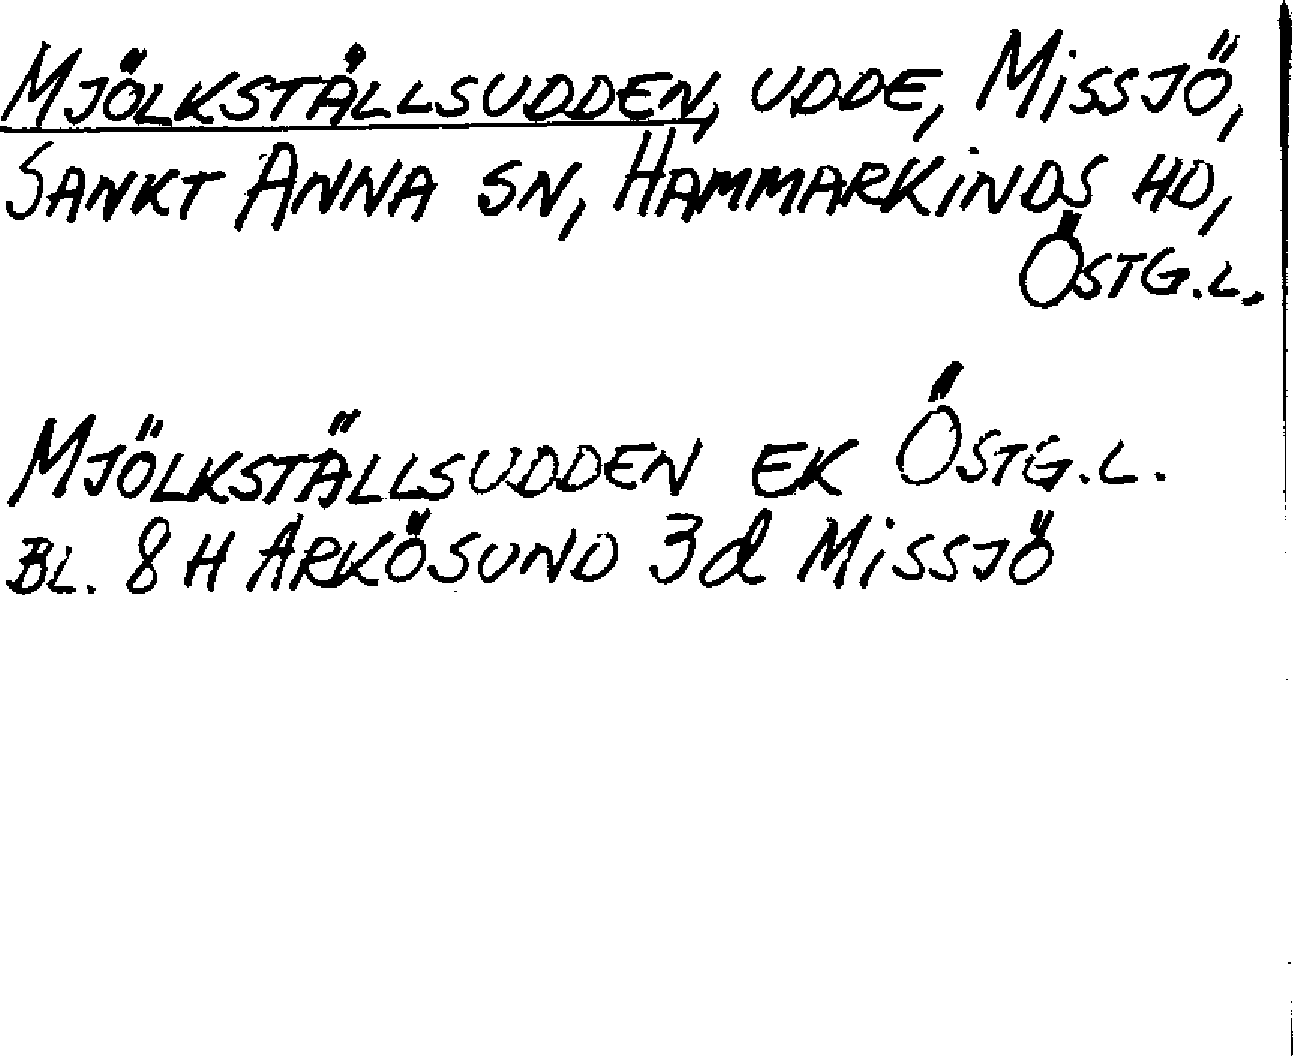 MJÖLKSTÄLLSUDDEN, UDDE, MiSSJÖ,
SANKT ANNA SN, HAMMARKiNDS HD,
ÖSTG.L.
MJÖLKSTÄLLSUDDEN EK ÖSTG.L.
BL. 8 H ARKÖSUND 3d MiSSJÖ